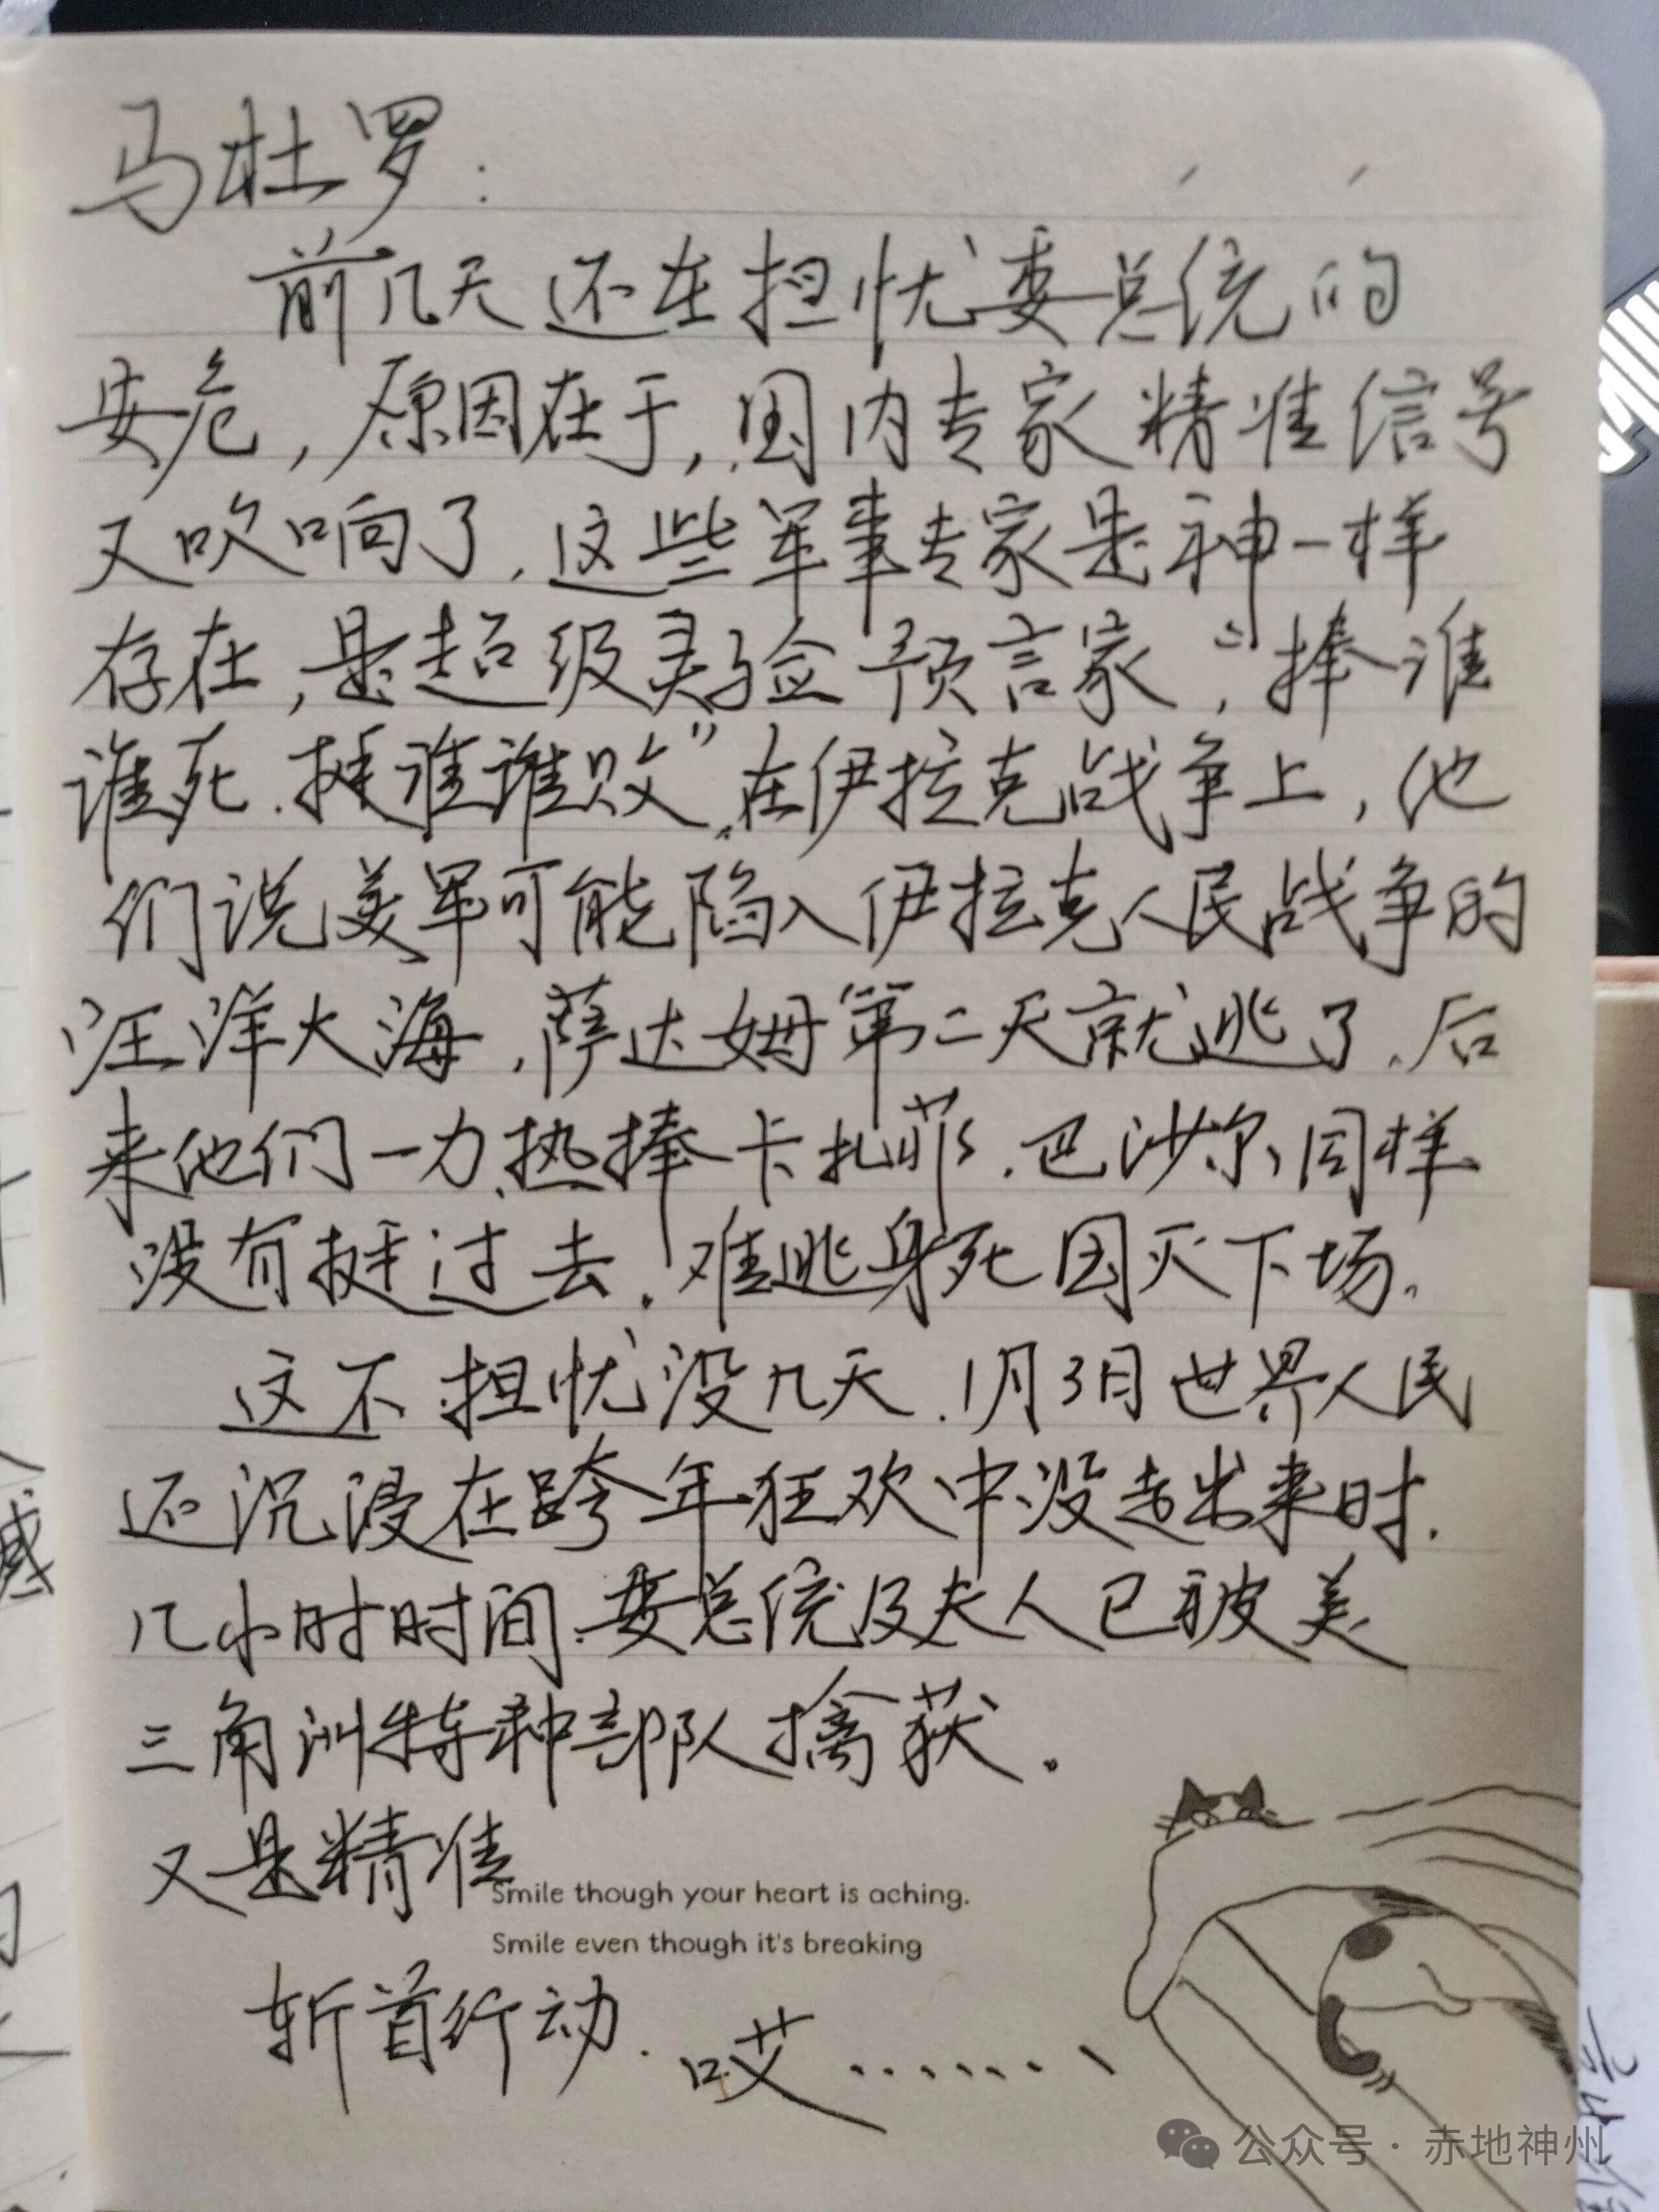 马杜罗:
前几天还在担忧委总统的
安危,原因在于,国内专家精准信号
又吹响了,这些军事专家是神一样
存在,是超级灵验预言家,“捧谁
谁死.挺谁谁败”.在伊拉克战争上,他
们说美军可能陷入伊拉克人民战争的
汪洋大海,萨达姆第二天就逃了.后
来他们一力热捧卡扎菲.巴沙尔同样
没有挺过去.难逃身死国灭下场.
这不担忧没几天.1月3日世界人民
还沉浸在跨年狂欢中没走出来时.
几小时时间.委总统及夫人已被美
三角洲特种部队擒获.
又是精准
Smile though your heart is aching.
Smile even though it's breaking
斩首行动.哎.......
公众号·赤地神州